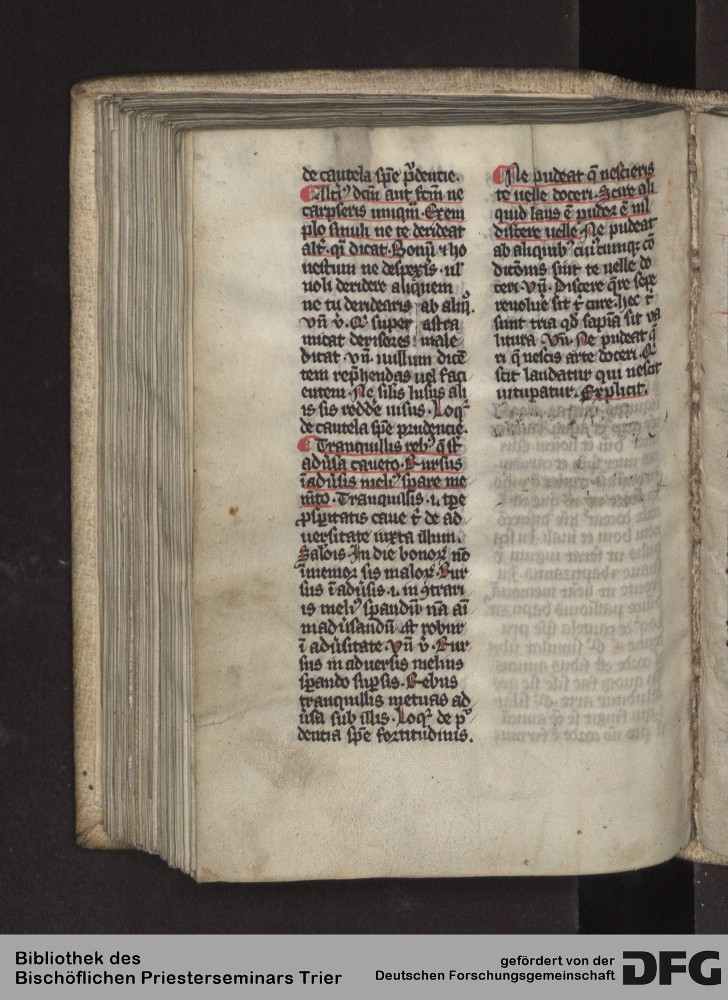 de cautela spe p̄dentie.
Alti᷒ dcm̄ aut fcm̄ ne
carpseris umqm̄. Exem
plo simili ne te derideat
alt̄. qi dicat. Bonū ⁊ ho
nestum ne despexis. ul᷒
noli deridere aliquem
ne tu deridearis ab aliq̄.
Vn̄ v̄. Qi super astra
micat derisores male
dicat vn̄. nullum dicē
tem rep̄hendas uel faci
entem. Ne filis lusus ali
is sis redde uisus. Loqr̄
de cautela spē prudencie.
Tranquillis reb᷒ q̄ st̄
adūsa caueto. Rursus
ī adūsis meli᷒ spare me
mīto. Tranquillis .i. tpe
ꝓspitatis caue t̄ de ad
uersitate iuxta illum.
Salōis. In die bonoꝝ nō
īmemor sis maloꝝ. Rur
sus ī adūsis .i. in ꝯtrari
is meli᷒ spandū nā aī
madūsandū st̄ robur
ī adūsitate. Vn̄ v̄. Rur
sus in aduersis melius
spando supsis. Rebus
tranquillis metuas ad
ūsa sub illis. Loqr̄ de p̄
dentia spē fortitudinis.
Ne pudeat q̄ nescieris
te uelle doceri. Scire ali
quid laus ē pudor ē nil
discere uelle. Ne pudeat
ab aliquib᷒ cui᷒cumqꝫ cō
dicōnis sint te uelle do
ceri. Vn̄. Discere q̄re sepe
reuolue sit t̄ cure. hec t̄
sunt tria qd̄ sapīa sit va
litura. Vn̄. Ne pudeat q̄
ri q̄ nescis arte doceri. Q̄
scit laudatur qui nescit
uitupatur. Explicit.
Bibliothek des
Bischöflichen Priesterseminars Trier
gefördert von der
Deutschen Forschungsgemeinschaft
DFG